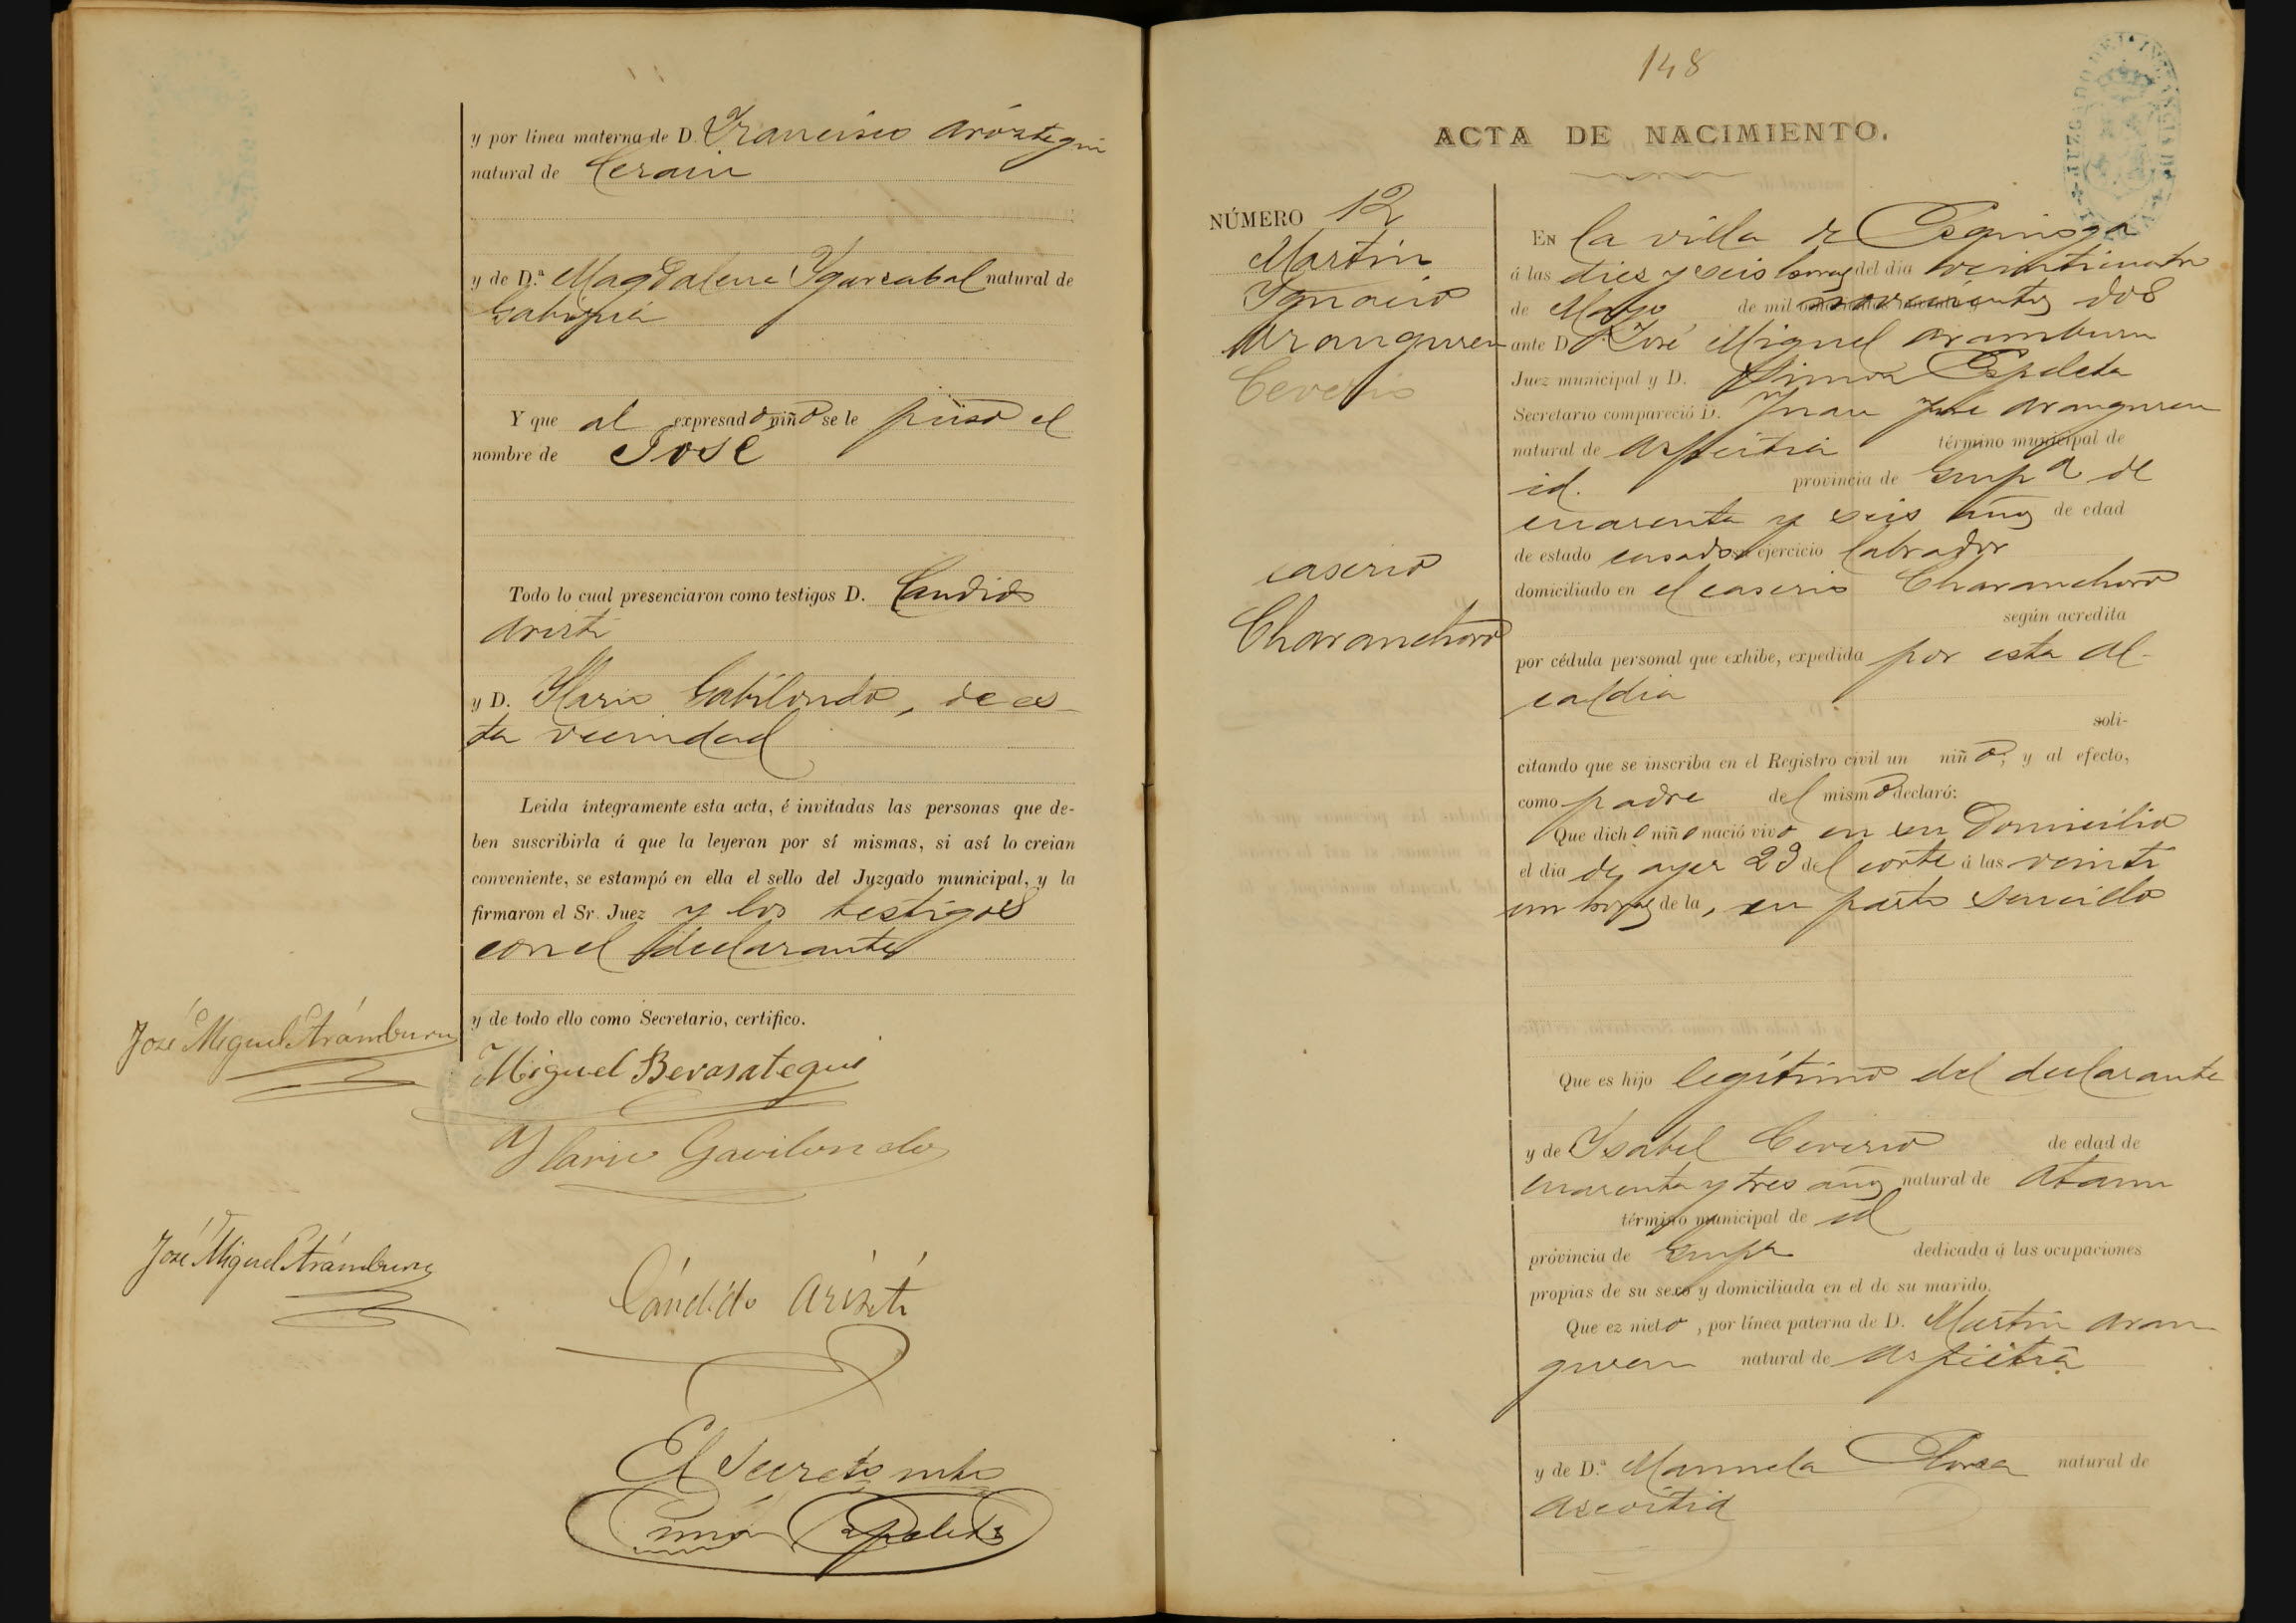 y por línea materna de D. Francisco Aróztegui
natural de Cerain
y de D.ª Magdalena Ygarzabal natural de
Gabiria
Y que al expresado niño se le puso el
nombre de José
Todo lo cual presenciaron como testigos D. Candido
Aristi
y D. Ylario Gabilondo, de es-
ta vecindad
Leida íntegramente esta acta, é invitadas las personas que de-
ben suscribirla á que la leyeran por sí mismas, si así lo creian
conveniente, se estampó en ella el sello del Juzgado municipal, y la
firmaron el Sr. Juez y los testigos
con el declarante
y de todo ello como Secretario, certifico.
José Miguel Arámburu
Miguel Berasategui
Ylario Gavilondo
José Miguel Arámburu
Cándido Aristi
El Secreto
Simón Ezpeleta
148
ACTA DE NACIMIENTO.
NÚMERO 12
Martin
Ygnacio
Aranguren
Ceverio
caserio
Charanchoro
EN la villa de Ezquioga
á las diez y seis horas del día veinticuatro
de Mayo de mil novecientos dos
ante D. José Miguel Aramburu
Juez municipal y D. Simon Ezpeleta
Secretario compareció D. Juan José Aranguren
natural de Azpeitia término municipal de
id. provincia de Guipª de
cuarenta y seis años de edad
de estado casado su ejercicio labrador
domiciliado en el caserio Charanchoro
según acredita
por cédula personal que exhibe, expedida por esta Al-
caldia
soli-
citando que se inscriba en el Registro civil un niño, y al efecto,
como padre del mismo declaró:
Que dicho niño nació vivo en su domicilio
el dia de ayer 23 del corte á las veinti
un horas de la, en parto sencillo
Que es hijo legítimo del declarante
y de Ysabel Ceverio de edad de
cuarenta y tres años natural de Ataun
término municipal de id
próvincia de Guipª dedicada á las ocupaciones
propias de su sexo y domiciliada en el de su marido.
Que ez nieto, por línea paterna de D. Martin Aran
guren natural de Azpeitia
y de D.ª Manuela natural de
Azcoitia